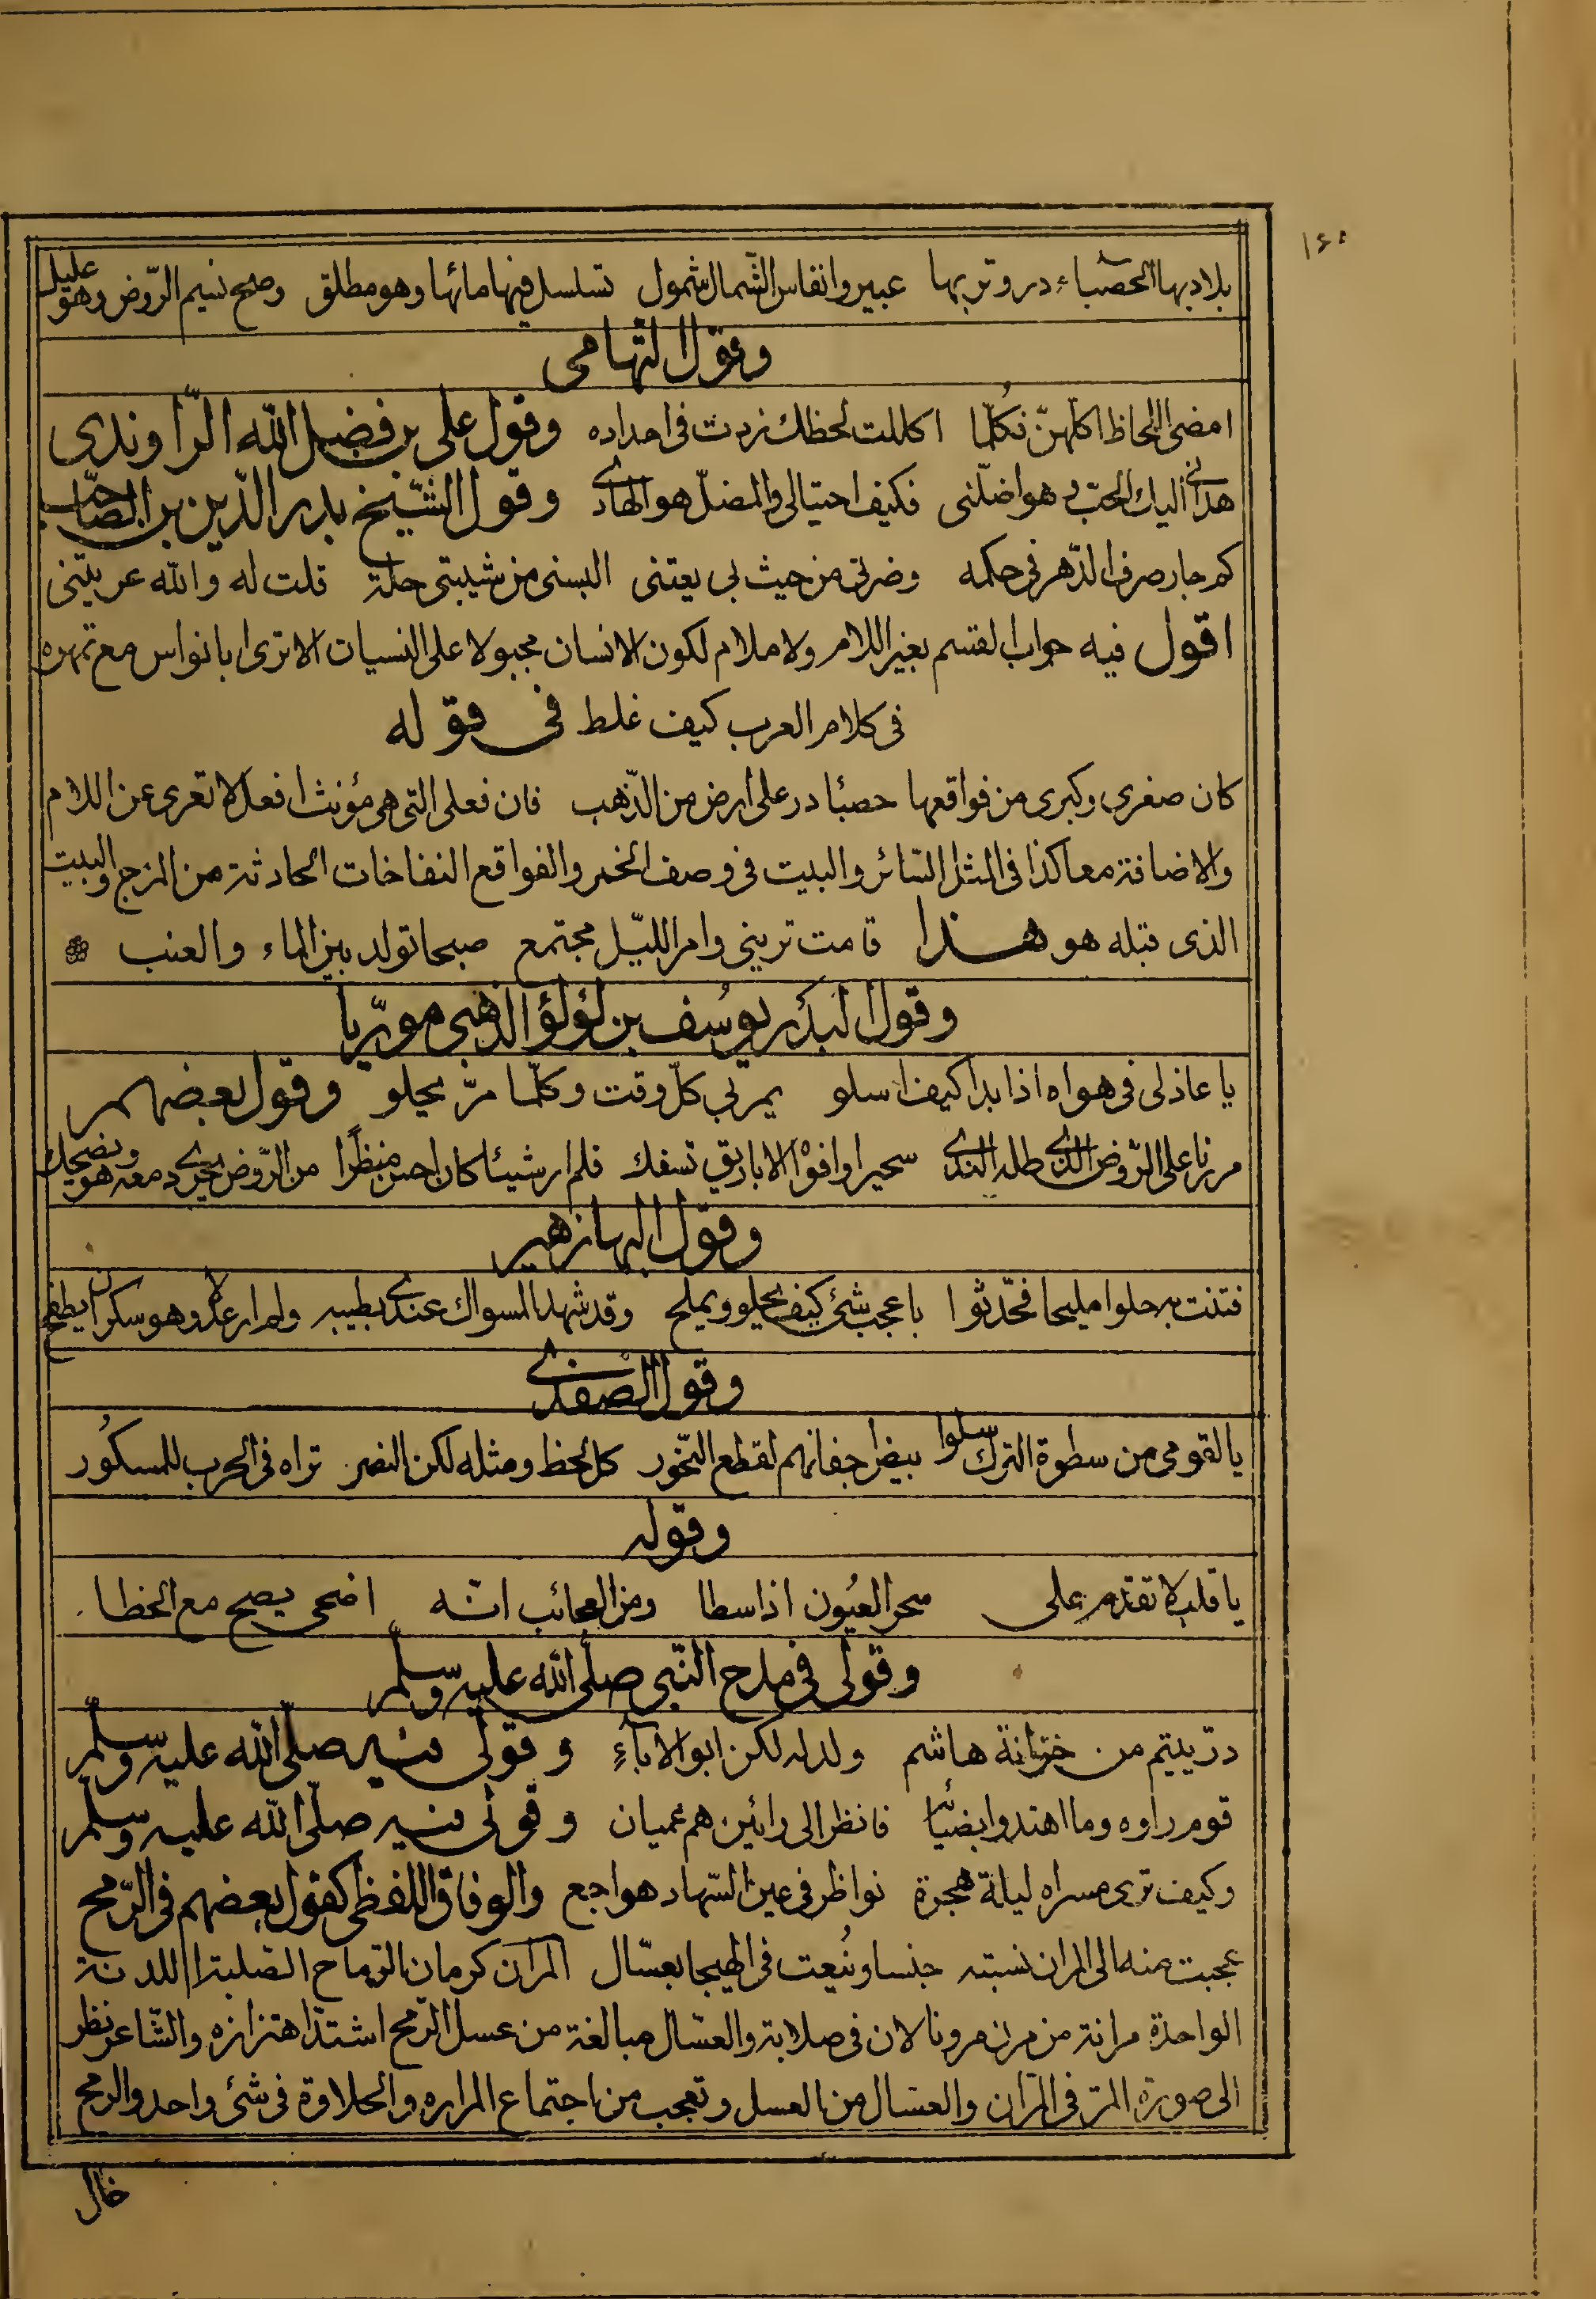 ۱۶۰
بلاد بها الحصباء در وتربها عبير وانفاس الشمال شمول تسلسل فيها مائها وهو مطلق وصح نسيم الرّوض وهو عليل
وقول التهامى
امضى اللحاظ اكلهنّ فكلّما اكللت لحظك زدت فى احداده وقول على بن فضل الله الرّاوندى
هدانى اليك الحبّ بى هو اضلّنى فكيف احتيالى والمضلّ هو الهادى وقول الشّيخ بدر الدّين بن الصّاحب
كم جار صرف الدّهر فى حكمه وضرنى من حيث بى يعتنى البسنى من شيبتى حلة قلت له والله عريتنى
اقول فيه جواب القسم بغير اللام ولا ملام لكون الانسان مجبولا على النسيان الا ترى ابا نواس مع تمهره
فى كلام العرب كيف غلط فى قوله
كان صغرى وكبرى من فواقعها حصبًا در على ارض من الذّهب فان فعلى التى هى مؤنث افعل لا تعرى عن اللام
والاضافة معا كذا فى المثل السّائر والبيت فى وصف الخمر والفواقع النفاخات الحادثة من المزج والبيت
الذى قبله هو هذا قامت ترينى وامر الليّل مجتمع صبحا تولد بين الماء والعنب
وقول البدر يوسف بن لؤلؤ الذهبى مورّيا
يا عاذلى فى هواه اذا بدا كيف اسلو يمر بى كلّ وقت وكلّما مرّ يحلو وقول بعضهم
مررنا على الرّوض الذى طله الندى سحيرا وافواه الاباريق تسفك فلم ار شيئا كان احسن منظرًا من الرّوض يجرى دمعه وهو يضحك
وقول البها زهير
فتنت به حلوا مليحا فحّدثوا باعجب شئ كيف يحلو ويملح وقد شهد المسواك عندى بطيبه ولم ار عدلا وهو سكران يطفح
وقول الصّفدى
يا لقومى من سطوة الترك سلوا بيض اجفانهم لقطع النّحور كل لحظ ومثله لكن النصر تراه فى الحرب للمسكُور
وقوله
يا قلب لا تقدم على سحر العيُون اذا سطا ومن العجائب انّه اضحى يصح مع الخطا
وقولى فى مدح النّبى صلّى الله عليه وسلّم
درّ يتيم من خزانة هاشم ولد له لكن ابو الاٰباءِ وقولى فيه صلّى الله عليه وسلّم
قوم راوه وما اهتدوا بضيائه فانظر الى رائين هم عميان وقولى فيه صلّى الله عليه وسلّم
وكيف ترى مسراه ليلة هجرة نواظر فى عين السّهاد هواجع والوفاق اللفظى كقول بعضهم فى الرّمح
عجبت منه الى المران نسبته جنسا ونُعت فى الهيجا بعسّال المران كرمان الرماح الصّلبة اللدنة
الواحدة مرانة من مرن مرونا لان فى صلابة والعسّال مبالغة من عسل الرّمح اشتدّ اهتزازه والشّاعر نظر
الى صورة المرّ فى المرّان والعسّال من العسل وتعجب من اجتماع المراره والحلاوة فى شئ واحد والرمح
خال